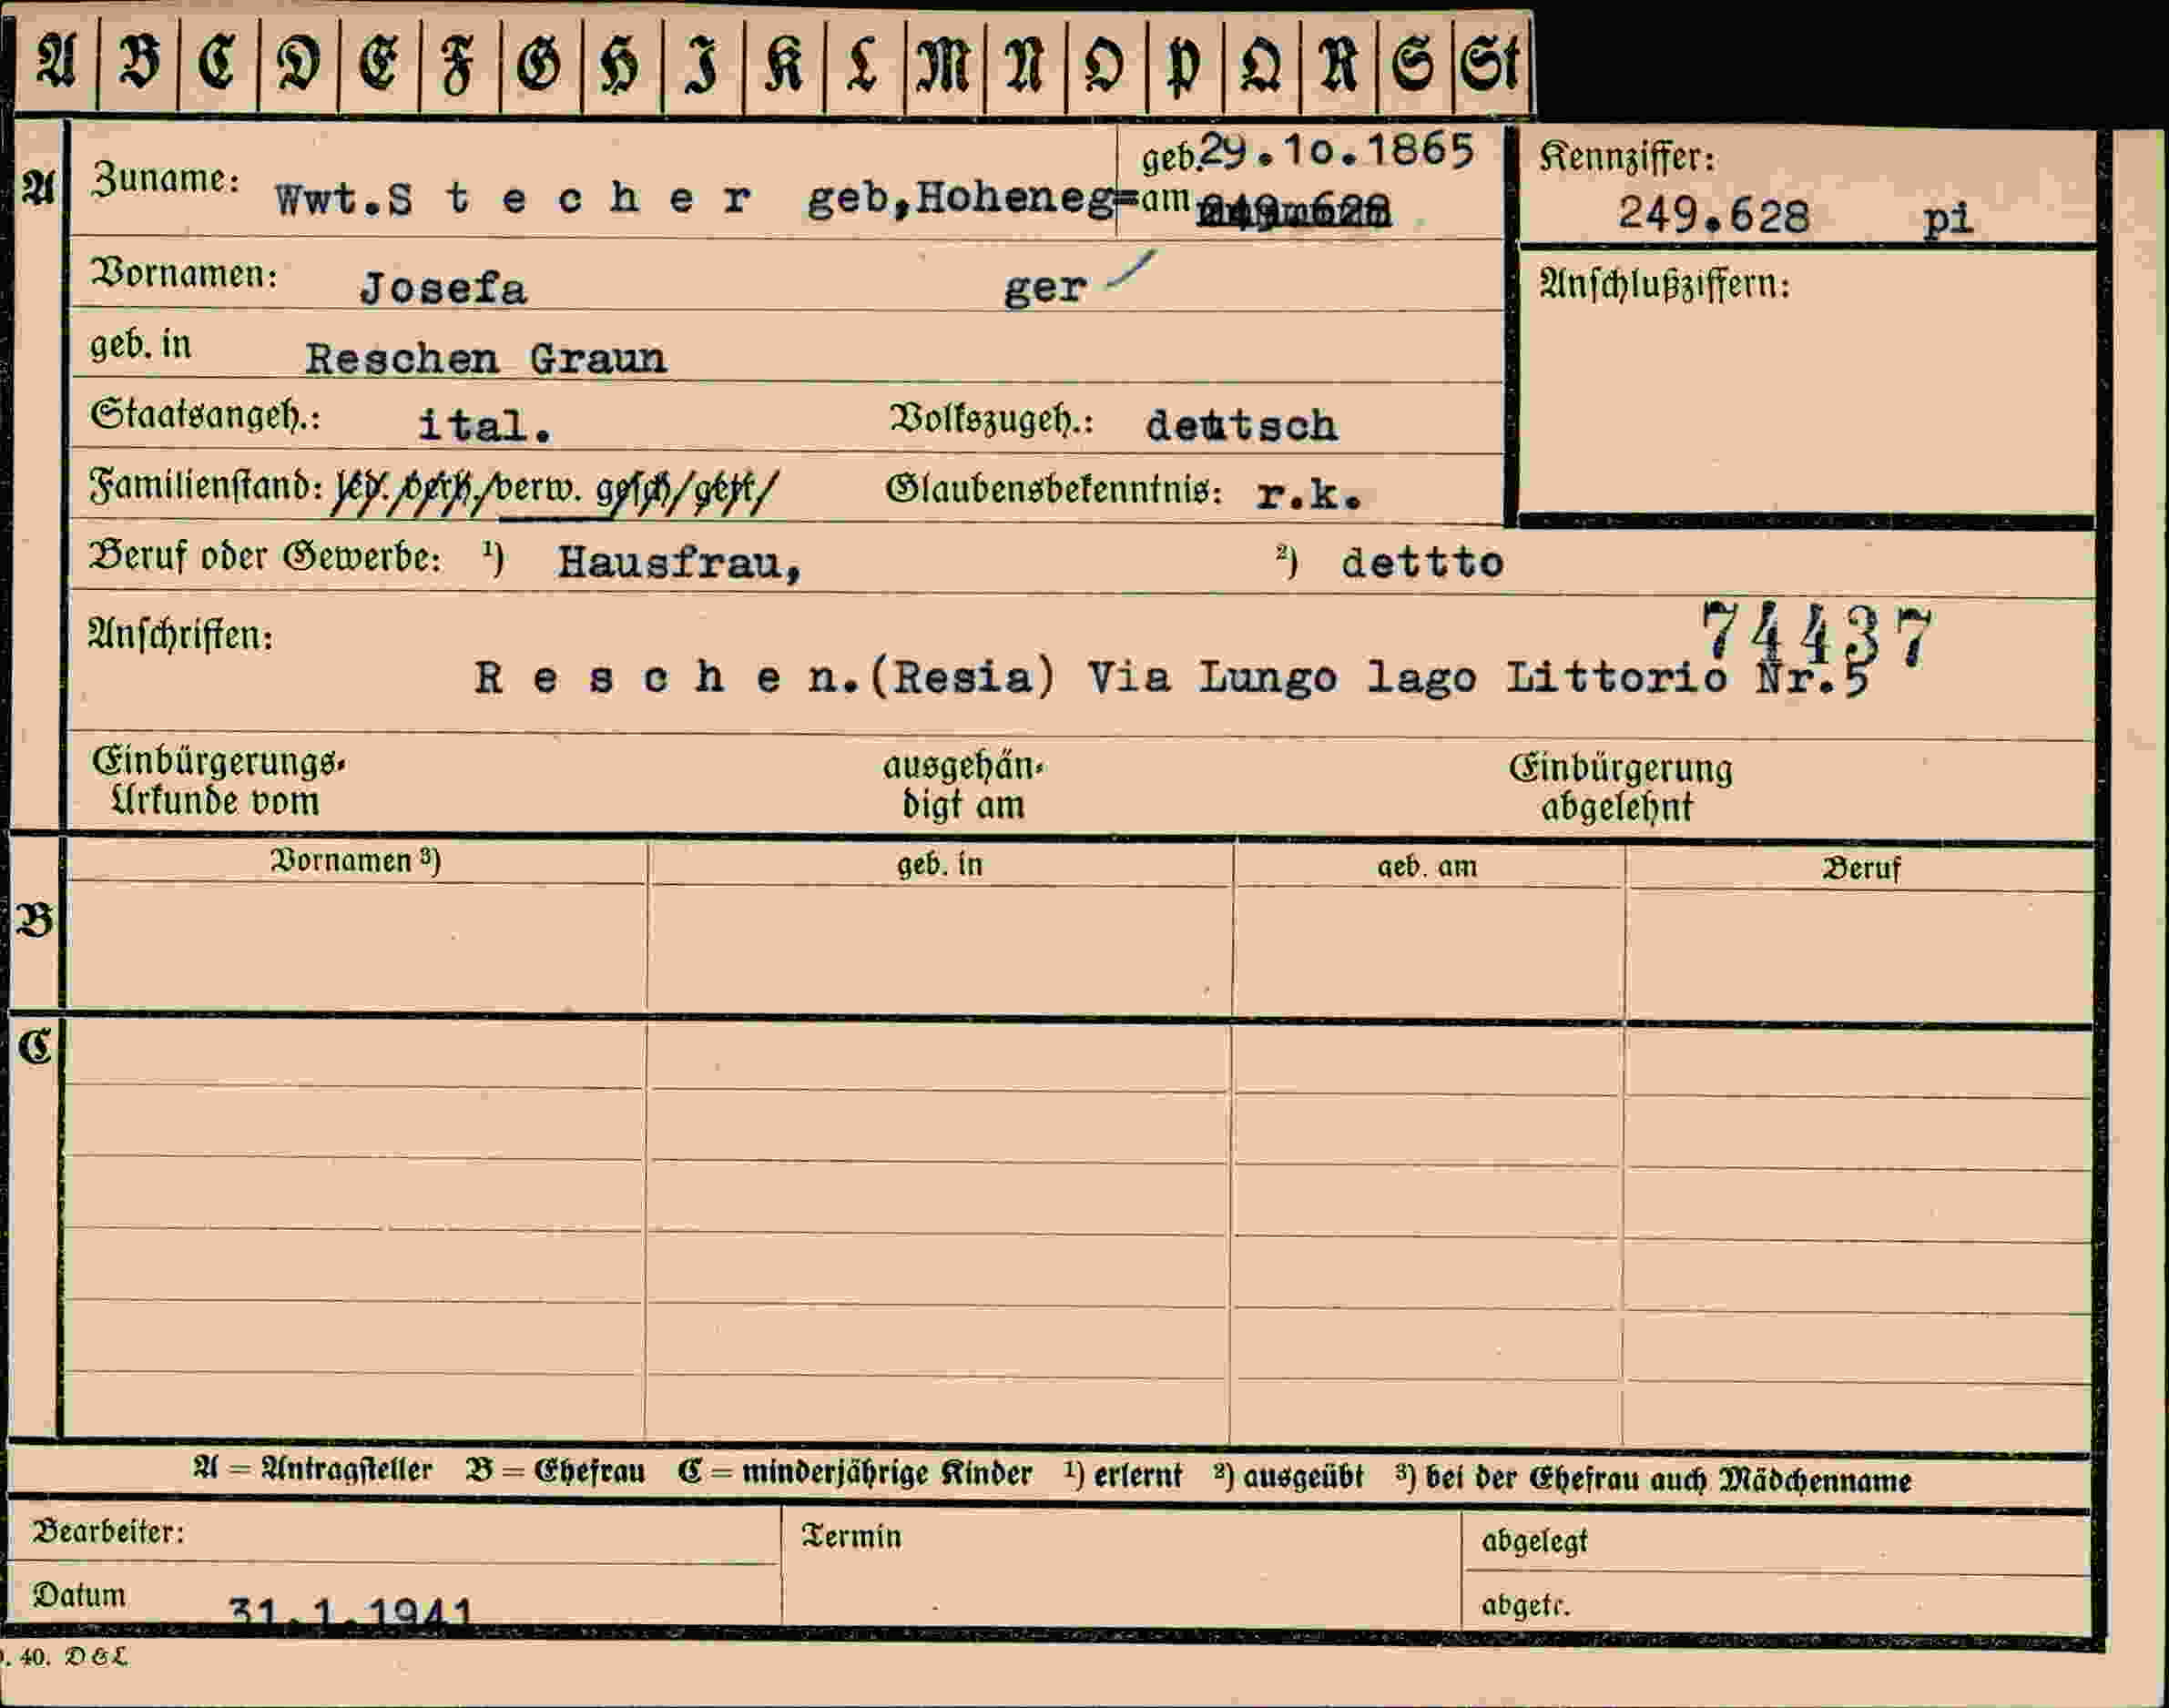 A B C D E F G H I K L M N O P Q R S St
A Zuname: Wwt.S t e c h e r geb,Hoheneg= geb. 29.10.1865
am
Kennziffer:
249.628 pi
Vornamen: Josefa ger
Anschlußziffern:
geb. in Reschen Graun
Staatsangeh.: ital. Volkszugeh.: deutsch
Familienstand: led./verh./verw. gesch/getr/ Glaubensbekenntnis: r.k.
Beruf oder Gewerbe: ¹) Hausfrau, ²) dettto
Anschriften: 74437
R e s c h e n.(Resia) Via Lungo lago Littorio Nr.5
Einbürgerungs-
Urkunde vom
ausgehän-
digt am
Einbürgerung
abgelehnt
Vornamen ³) geb. in geb. am Beruf
B
C
A = Antragsteller B = Ehefrau C = minderjährige Kinder ¹) erlernt ²) ausgeübt ³) bei der Ehefrau auch Mädchenname
Bearbeiter: Termin abgelegt
Datum 31.1.1941 abgetr.
. 40. D&L